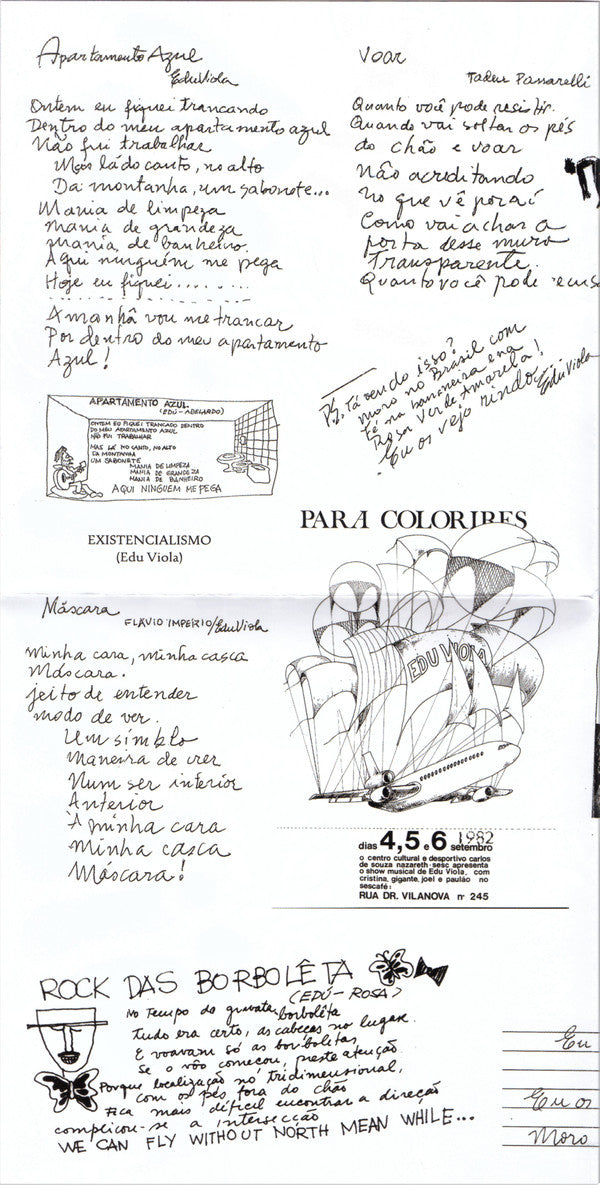 Apartamento Azul
Edu Viola
Ontem eu fiquei trancando
Dentro do meu apartamento azul
Não fui trabalhar
Mas lá do canto, no alto
Da montanha, um sabonete...
Mania de limpeza
mania de grandeza
mania de banheiro.
Aqui ninguém me pega
Hoje eu fiquei.......
Amanhã vou me trancar
Por dentro do meu apartamento
Azul!
Voar
Tadeu Passarelli
Quanto você pode resistir.
Quando vai soltar os pés
do chão e voar
Não acreditando
no que vê por aí
Como vai achar a
porta desse muro
Transparente.
Quanto você pode recusa
PS. Tá vendo isso?
moro no Brasil com
fé na bananeira e na
Rosa Verde Amarela!
Eu os vejo rindo
Edu Viola
APARTAMENTO AZUL
(EDÚ-ABELARDO)
ONTEM EU FIQUEI TRANCADO DENTRO
DO MEU APARTAMENTO AZUL
NÃO FUI TRABALHAR
MAS LÁ NO CANTO, NO ALTO
DA MONTANHA
UM SABONETE
MANIA DE LIMPEZA
MANIA DE GRANDEZA
MANIA DE BANHEIRO
AQUI NINGUEM ME PEGA
EXISTENCIALISMO
(Edu Viola)
PARA COLORIRES
EDU VIOLA
dias 4,5 e 6 setembro 1982
o centro cultural e desportivo carlos
de souza nazareth-sesc apresenta
o show musical de Edu Viola, com
cristina, gigante, joel e paulão no
sescafé:
RUA DR. VILANOVA nº 245
Máscara
FLÁVIO IMPERIO/Edu Viola
Minha cara, minha casca
Máscara.
jeito de entender
modo de ver.
Um símblo
Maneira de crer
Num ser interior
Anterior
À minha cara
minha casca
Máscara!
ROCK DAS BORBOLÊTA
(EDÚ-ROSA)
No tempo da gravata borbolêta
Tudo era certo, as cabeças no lugar.
E voavam só as borboletas
Se o vôo começou, preste atenção
Porque localização no tridimensional,
com os pés fora do chão
Fica mais difícil encontrar a direção
complicou-se a intersecção
WE CAN FLY WITHOUT NORTH MEAN WHILE...
Eu
Eu os
Moro